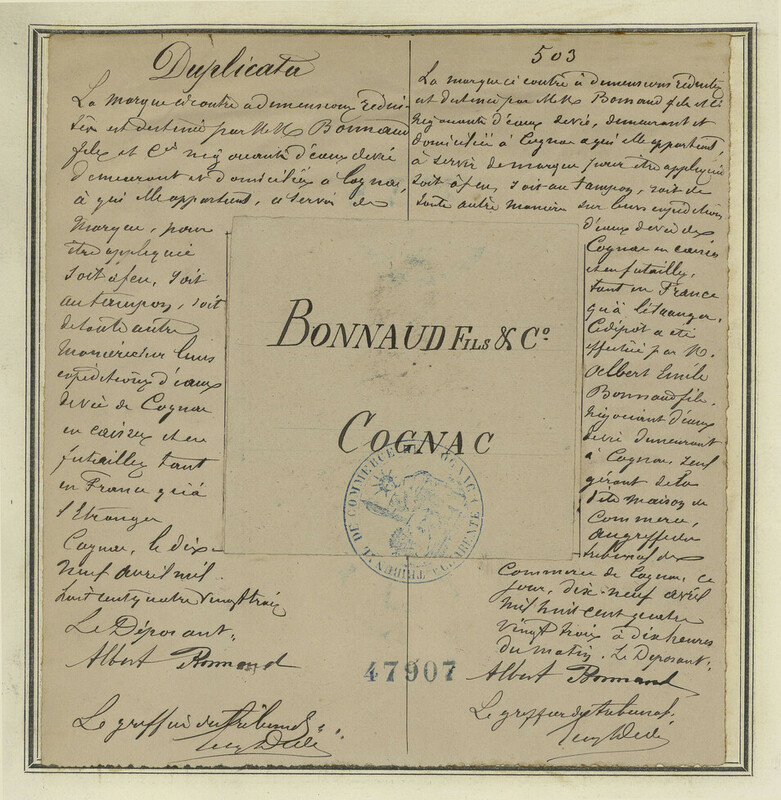 Duplicata
La marque ci contre à dimensions rédui-
tes est destinée par M M Bonnaud
fils et Cie négociants d'eaux de vie
demeurant et domiciliés à Cognac,
à qui elle appartient, à servir de
Marque, pour
être appliquée
soit à feu, soit
au tampon, soit
de toute autre
Manière sur leurs
expéditions d'eaux
de vie de Cognac
en caisses et en
futailles tant
en France qu'à
l'Etranger
Cognac, le dix-
neuf avril mil
huit cent quatre vingt trois
Le Déposant,
Albert Bonnaud
Le greffier du tribunal
503
La marque ci contre à dimensions réduites
est destinée par M M Bonnaud fils et Cie
négociants d'eaux de vie, demeurant et
domiciliés à Cognac à qui elle appartient
à servir de marque pour être appliquée
soit à feu, soit au tampon, soit de
toute autre manière sur leurs expéditions
d'eaux de vie de
Cognac en caisses
et en futailles,
tant en France
qu'à l'étranger.
Ce dépôt a été
effectué par M.
Albert Emile
Bonnaud fils.
négociant d'eaux
de vie demeurant
à Cognac, seul
gérant de la
dite maison de
Commerce,
au greffe du
tribunal de
Commerce de Cognac, ce
jour, dix-neuf avril
mil huit cent quatre
vingt trois à dix heures
du matin. Le Déposant,
Albert Bonnaud
Le greffier du tribunal,
BONNAUD FILS & Co.
COGNAC
TRIBUNAL DE COMMERCE DE COGNAC (CHARENTE)
47907